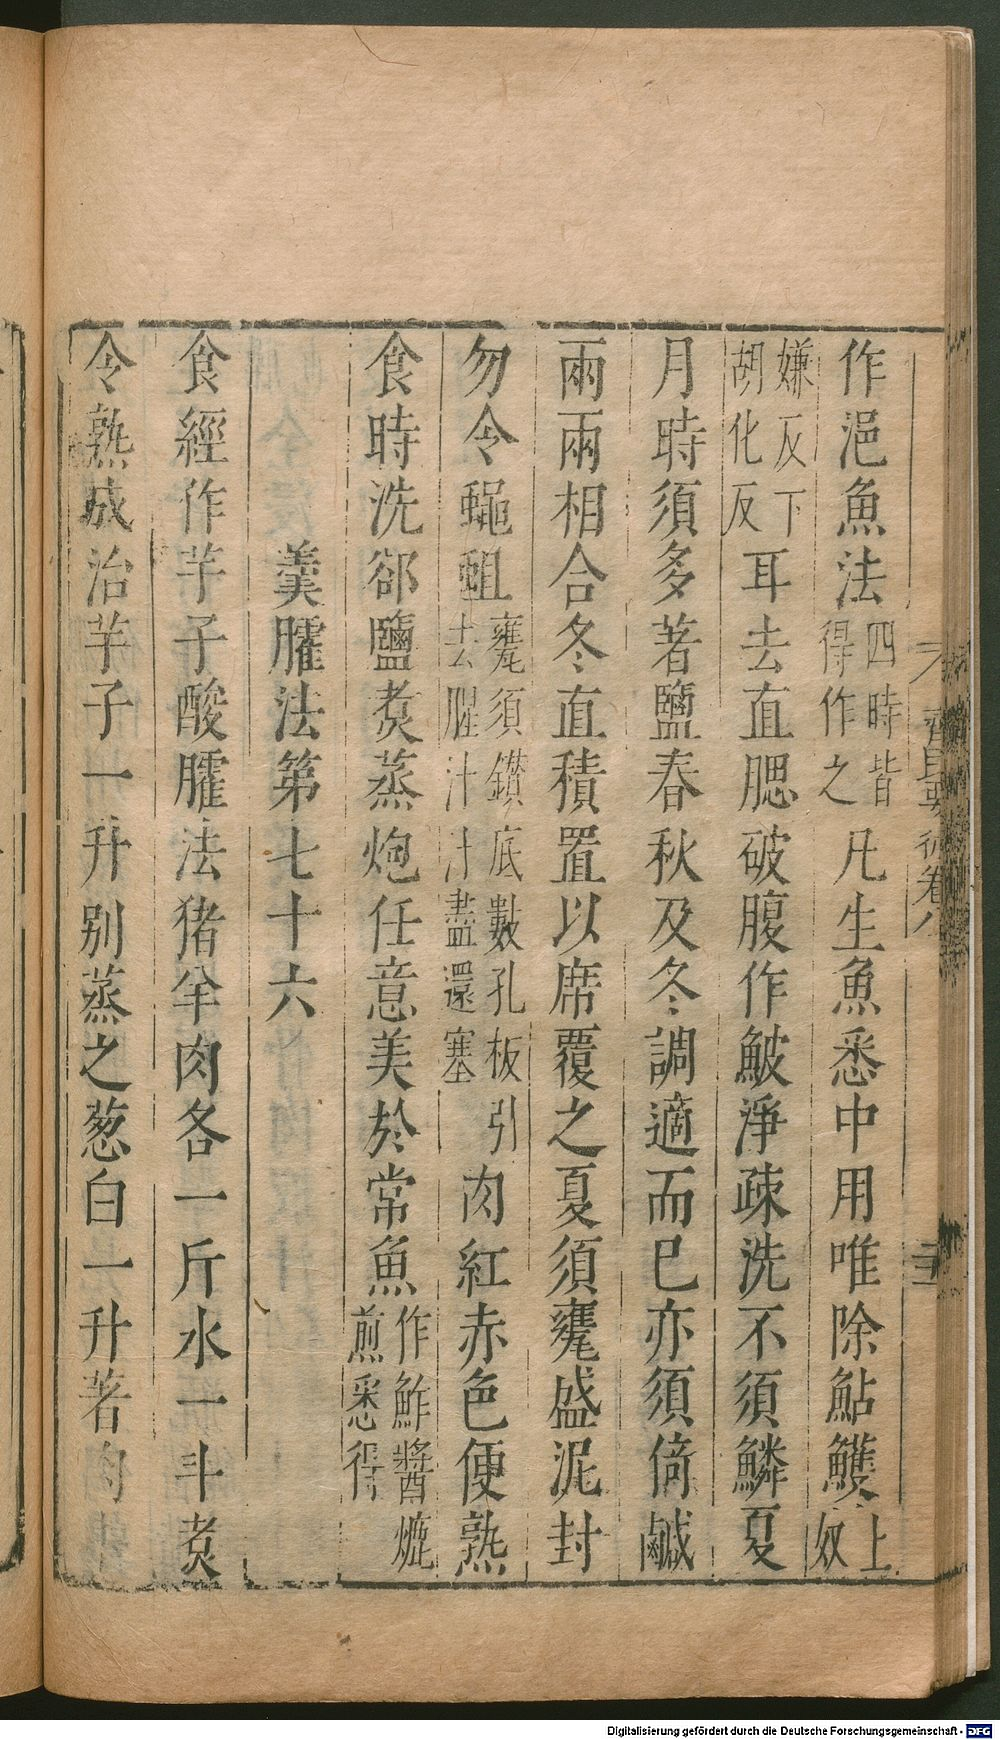 作浥魚法四時皆得作之凡生魚悉中用唯除鮎鱯上奴
嫌反下胡化反耳去直腮破腹作鮍淨疎洗不須鱗夏
月時須多著鹽春秋及冬調適而已亦須倚鹹
兩兩相合冬直積置以席覆之夏須甕盛泥封
勿令蠅蛆甕須鑚底數孔板引去腥汁汁盡還塞肉紅赤色便熟
食時洗郤鹽煑蒸炮任意美於常魚作鮓醬爊煎悉得
羹臛法第七十六
食經作芋子酸臛法猪羊肉各一斤水一斗煑
令熟成治芋子一升别蒸之葱白一升著肉
齊民要術卷八
Digitalisierung gefördert durch die Deutsche Forschungsgemeinschaft - DFG